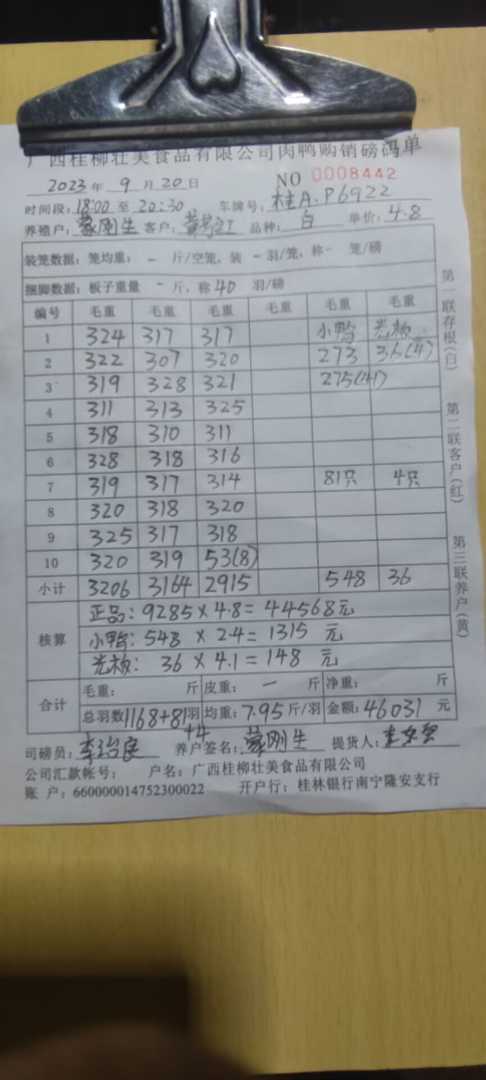 广西桂柳壮美食品有限公司肉鸭购销磅码单
2023年 9月 20日 NO 0008442
时间段:18:00 至 20:30 车牌号:桂A·P6922
养殖户: 刚生 客户: 品种: 白 单价: 4.8
装笼数据: 笼均重: - 斤/空笼, 装 - 羽/笼, 称 - 笼/磅
捆脚数据: 板子重量 - 斤, 称 40 羽/磅
编号 毛重 毛重 毛重 毛重 毛重 毛重
1 324 317 317 小鸭 光板
2 322 307 320 273 36(4)
3 319 328 321 275(41)
4 311 313 325
5 318 310 311
6 328 318 316
7 319 317 314 81只 4只
8 320 318 320
9 325 317 318
10 320 319 53(8)
小计 3206 3164 2915 548 36
核算 正品: 9285×4.8=44568元
小鸭: 548 × 2.4 = 1315 元
光板: 36 × 4.1 = 148 元
合计 毛重: 斤 皮重: — 斤 净重: 斤
总羽数1168+81羽 均重: 7.95斤/羽 金额: 46031 元
+4
司磅员: 李 良 养户签名: 刚生 提货人:
公司汇款帐号: 户名: 广西桂柳壮美食品有限公司
账 户: 660000014752300022 开户行: 桂林银行南宁隆安支行
第一联存根(白)
第二联客户(红)
第三联养户(黄)